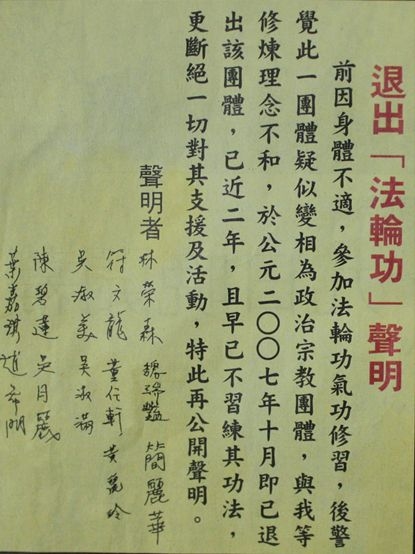 退出「法輪功」聲明
前因身體不適，參加法輪功氣功修習，後警
覺此一團體疑似變相為政治宗教團體，與我等
修煉理念不和，於公元二〇〇七年十月即已退
出該團體，已近二年，且早已不習練其功法，
更斷絕一切對其支援及活動，特此再公開聲明。
聲明者
林榮森 簡麗華
符文龍 黃麗玲
吳淑美 吳淑滿
陳碧蓮 吳月
葉嘉琪 趙